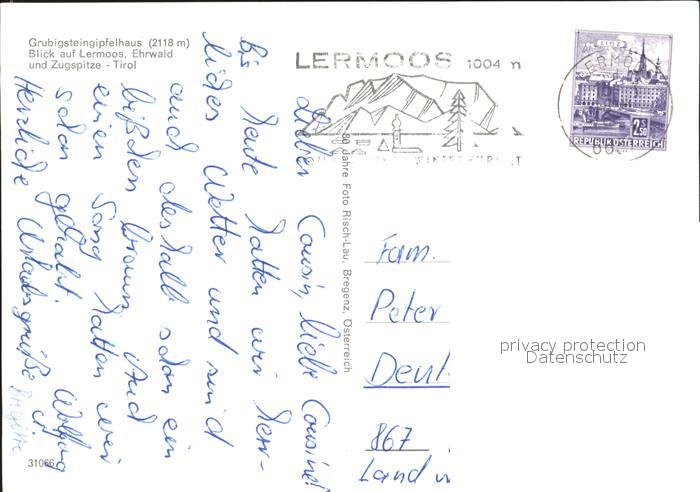 Grubigsteingipfelhaus (2118 m)
Blick auf Lermoos, Ehrwald
und Zugspitze - Tirol
LERMOOS 1004 m
LINZ
2.50
REPUBLIK ÖSTERREICH
Lieber Cousin, liebe Cousine!
Bis heute hatten wir herr-
liches Wetter und sind
auch deshalb schon ein
bißchen braun. Und
einen Song hatten wir
schon gehabt.
Herzliche Urlaubsgrüße
Wolfgang
Brigitte
80 Jahre Foto Risch-Lau, Bregenz, Österreich
Fam.
Peter
867
Land
privacy protection
Datenschutz